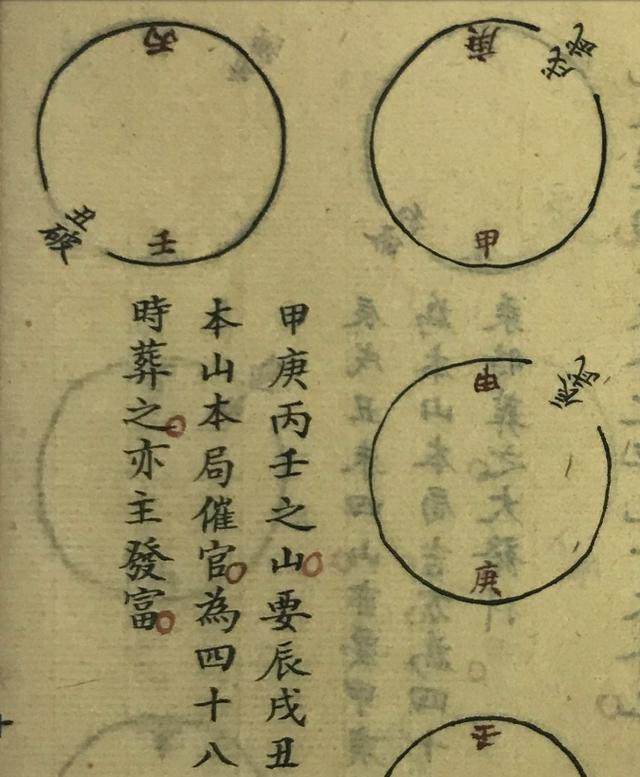 庚
甲
甲
庚
壬
丙
壬
丑破
甲庚丙壬之山要辰戌丑
本山本局催官為四十八
時葬之亦主發富